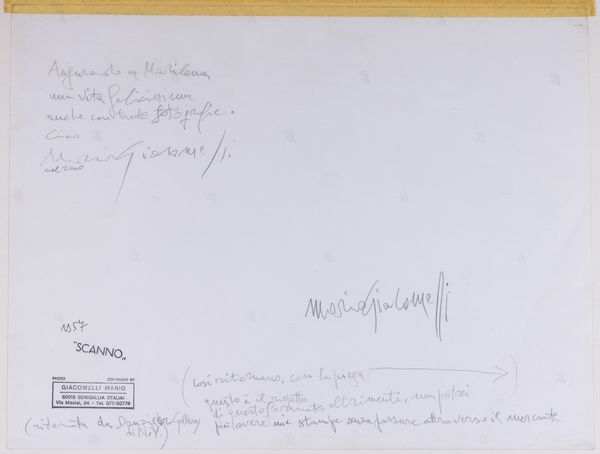 Augurando a Marilena
una vita felicissima
anche con tante fotografie.
Ciao
Mario Giacomelli
nel 2000
Mario Giacomelli
1957
"SCANNO"
PHOTO COPYRIGHT BY
GIACOMELLI MARIO
60019 SENIGALLIA (ITALIA)
Via Mastai, 24 - Tel. 071/60779
(così ritornano, con la piega
questo è il rigetto
di questo formato altrimenti non potrei
(ritirata da gallery più avere una stampa senza passare attraverso il mercante
di N.Y.)